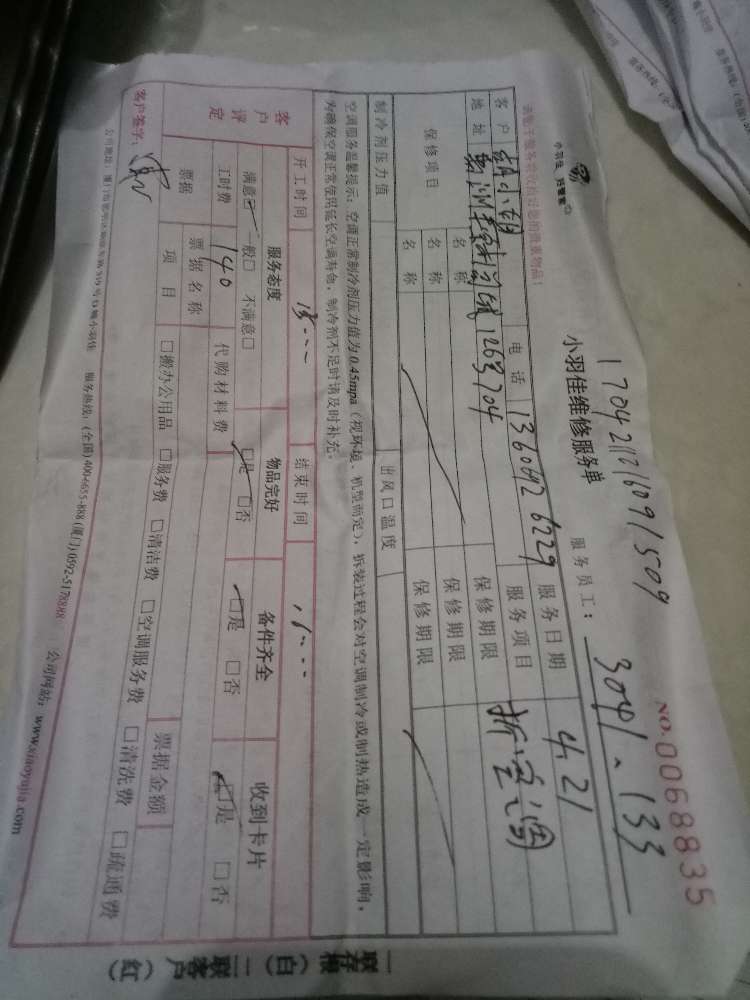 小羽佳 好管家
17042121609 1509
NO.0068835
小羽佳维修服务单
服务员工：3041、133
亲勿忘
客户 电话 13606926229 服务日期 4.21
地址 1263704 服务项目 拆空调
保修项目 名称 保修期限
名称 保修期限
名称 保修期限
制冷剂压力值 出风口温度
空调服务温馨提示：空调正常制冷剂压力值为0.45mpa（视环境、机型而定），拆装过程会对空调制冷或制热造成一定影响，
为确保空调正常使用延长空调寿命，制冷剂不足时请及时补充。
开工时间 结束时间
客户评定 服务态度 物品完好 备件齐全 收到卡片
满意☑ 一般□ 不满意□ ☑是 □否 ☑是 □否 ☑是 □否
工时费 140 代购材料费
票据 票据名称 票据金额
项目 □搬办公用品 □服务费 □清洁费 □空调服务费 □清洗费 □疏通费
客户签字：
服务热线：(全国)400-6655-888 (厦门)0592-5178888 公司网站：www.xiaoyujia.com
一联存根（白） 二联客户（红）